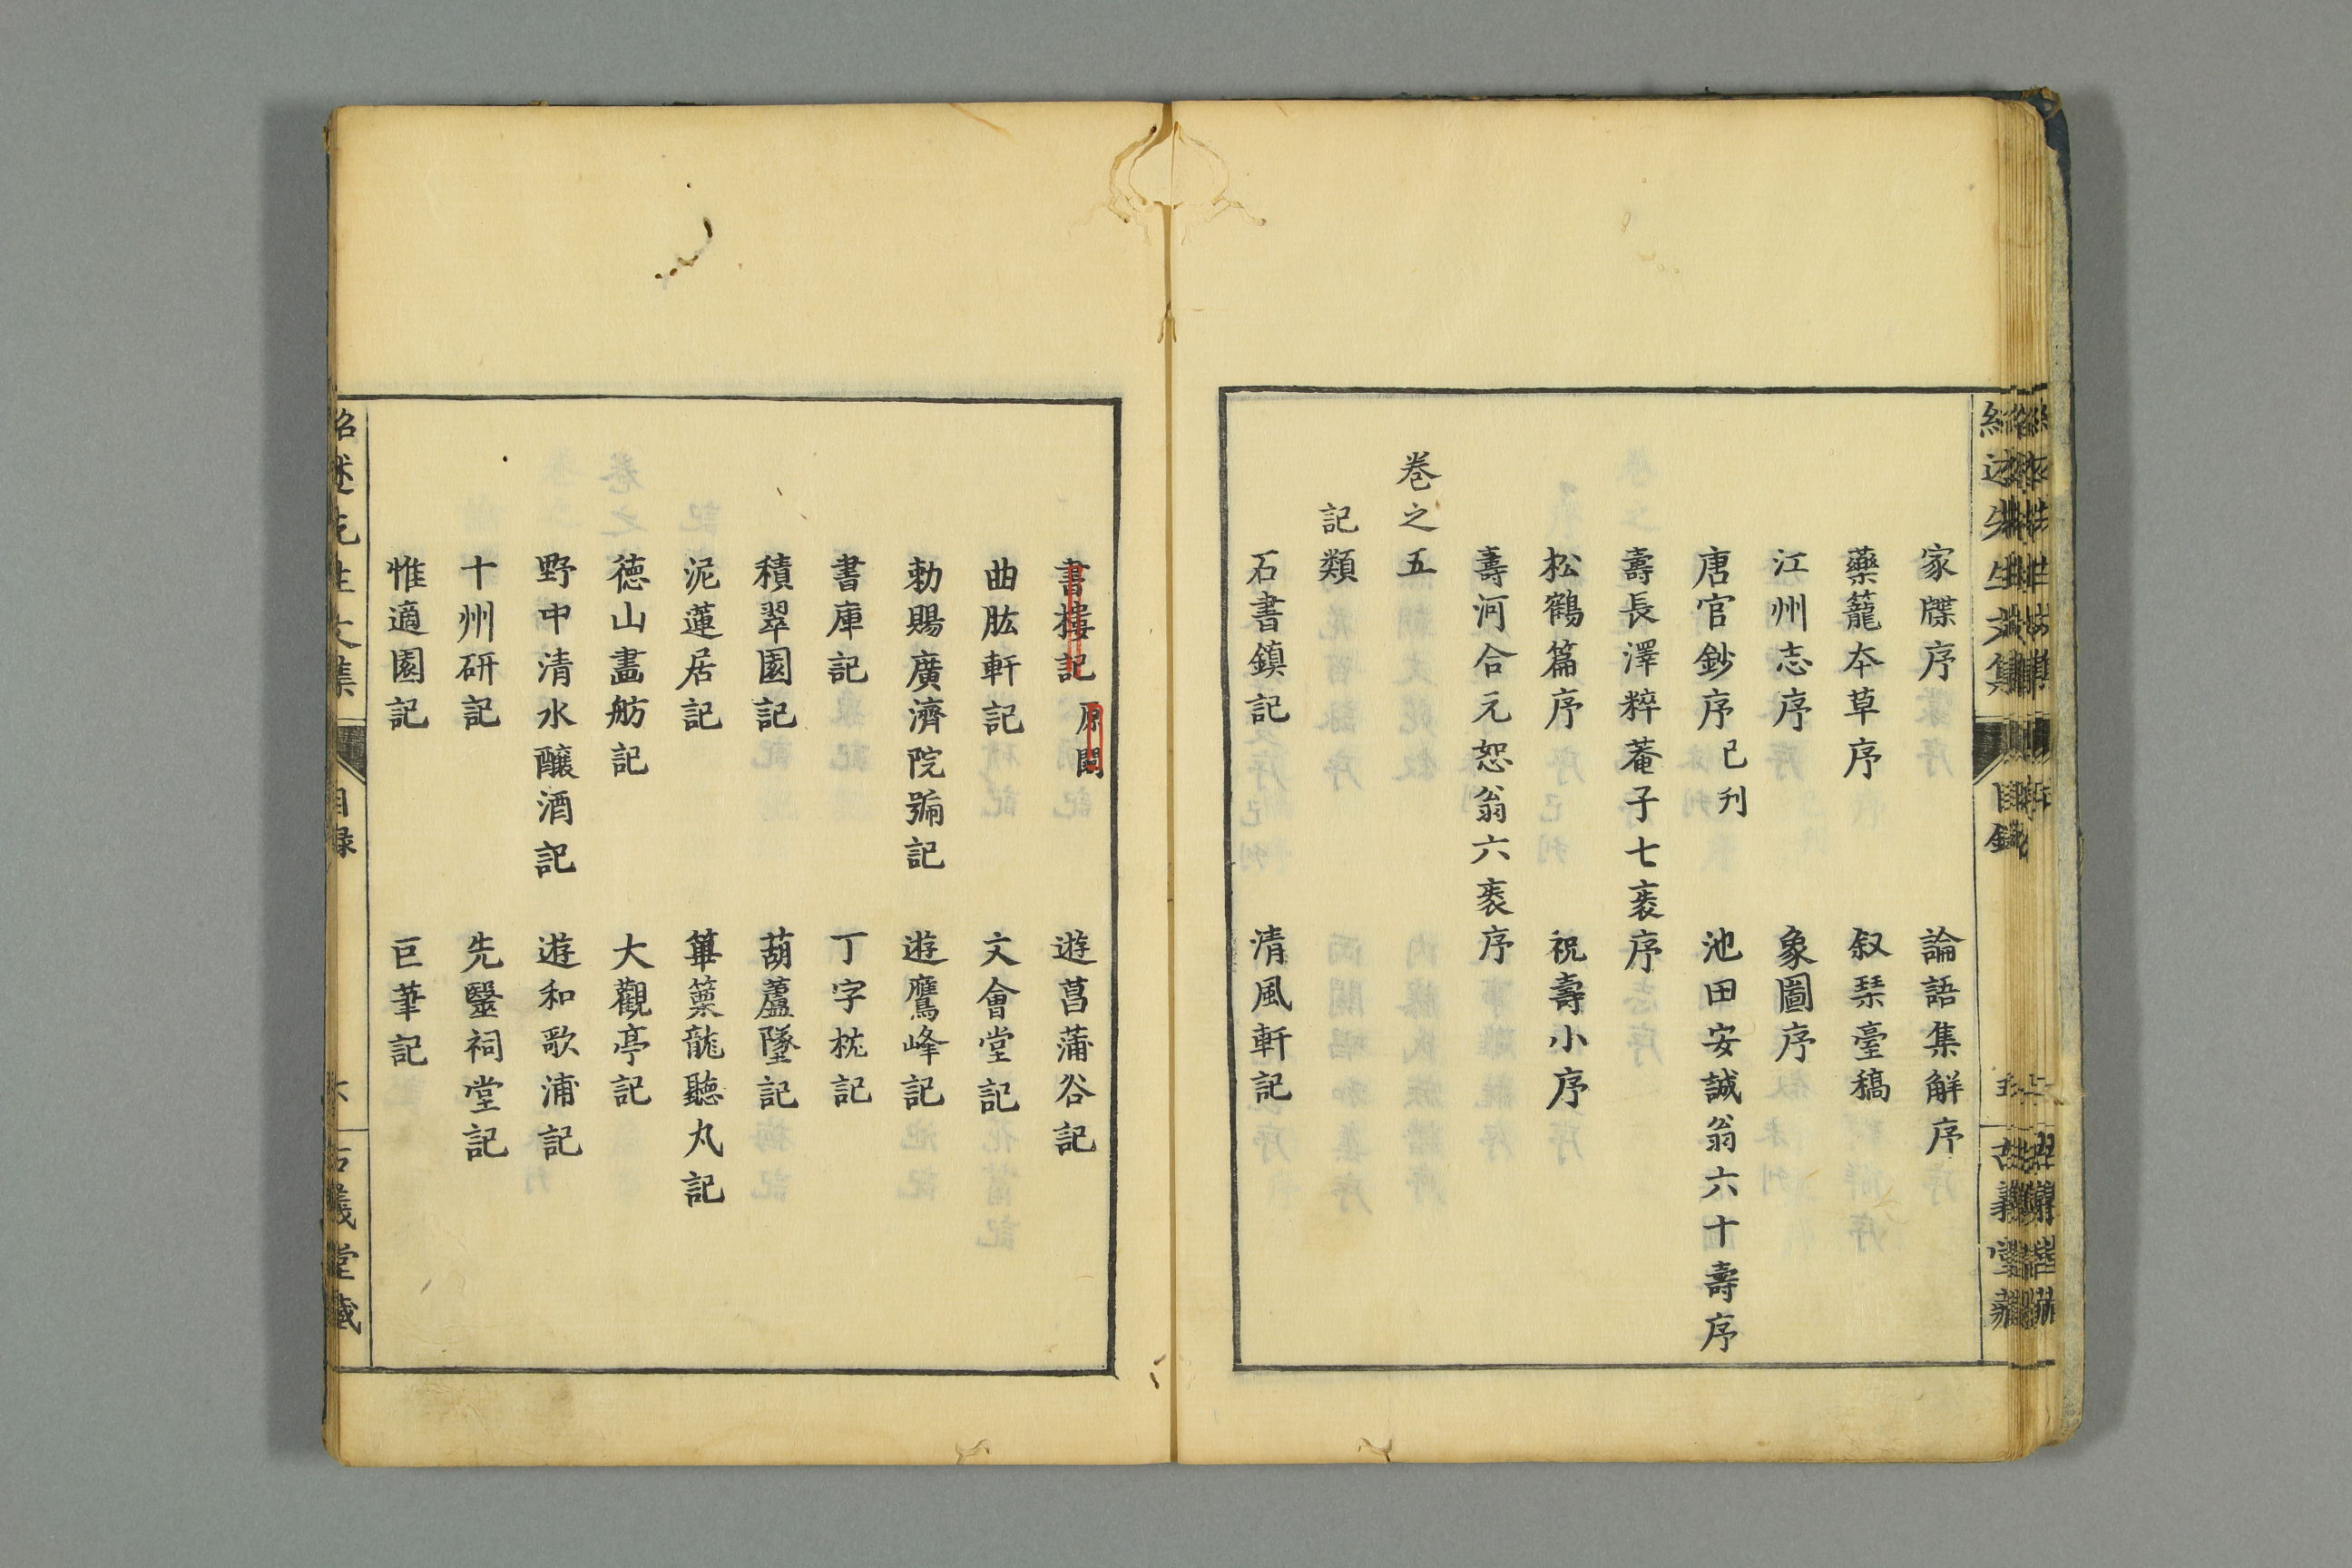 家牒序　論語集解序
藥籠本草序　叙琹臺稿
江州志序　象圖序
唐官鈔序已刋　池田安誠翁六十壽序
壽長澤粹菴子七袠序
松鶴篇序　祝壽小序
壽河合元恕翁六袠序
巻之五
記類
石書鎮記　清風軒記
書樓記原闕　遊菖蒲谷記
曲肱軒記　文會堂記
勅賜廣濟院號記　遊鷹峰記
書庫記　丁字枕記
積翠園記　葫蘆墜記
泥蓮居記　篳篥龍聽丸記
德山畵舫記　大觀亭記
野中清水釀酒記　遊和歌浦記
十州研記　先醫祠堂記
惟適園記　巨筆記
紹述先生文集　目録　六　古義堂藏